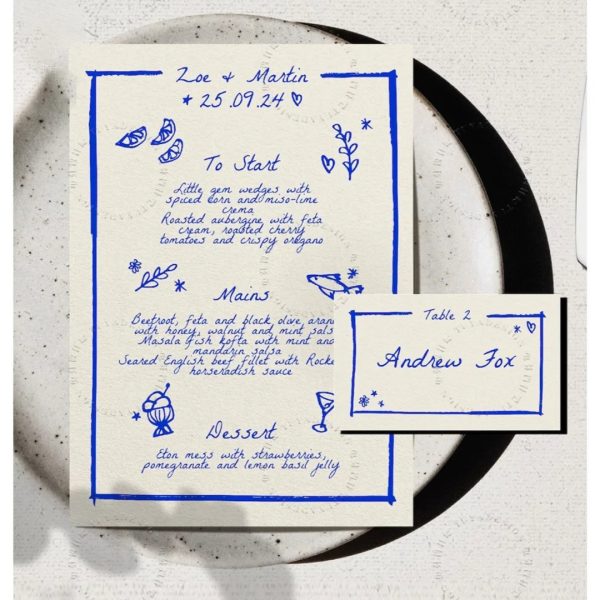 Zoe & Martin
25.09.24
To Start
Little gem wedges with
spiced corn and miso-lime
crema
Roasted aubergine with feta
cream, roasted cherry
tomatoes and crispy oregano
Mains
Beetroot, feta and black olive,
with honey, walnut and mint
Masala fish kofta with mint and
mandarin salsa
Seared English beef fillet with
horseradish sauce
Dessert
Eton mess with strawberries,
pomegranate and lemon basil jelly
Table 2
Andrew Fox